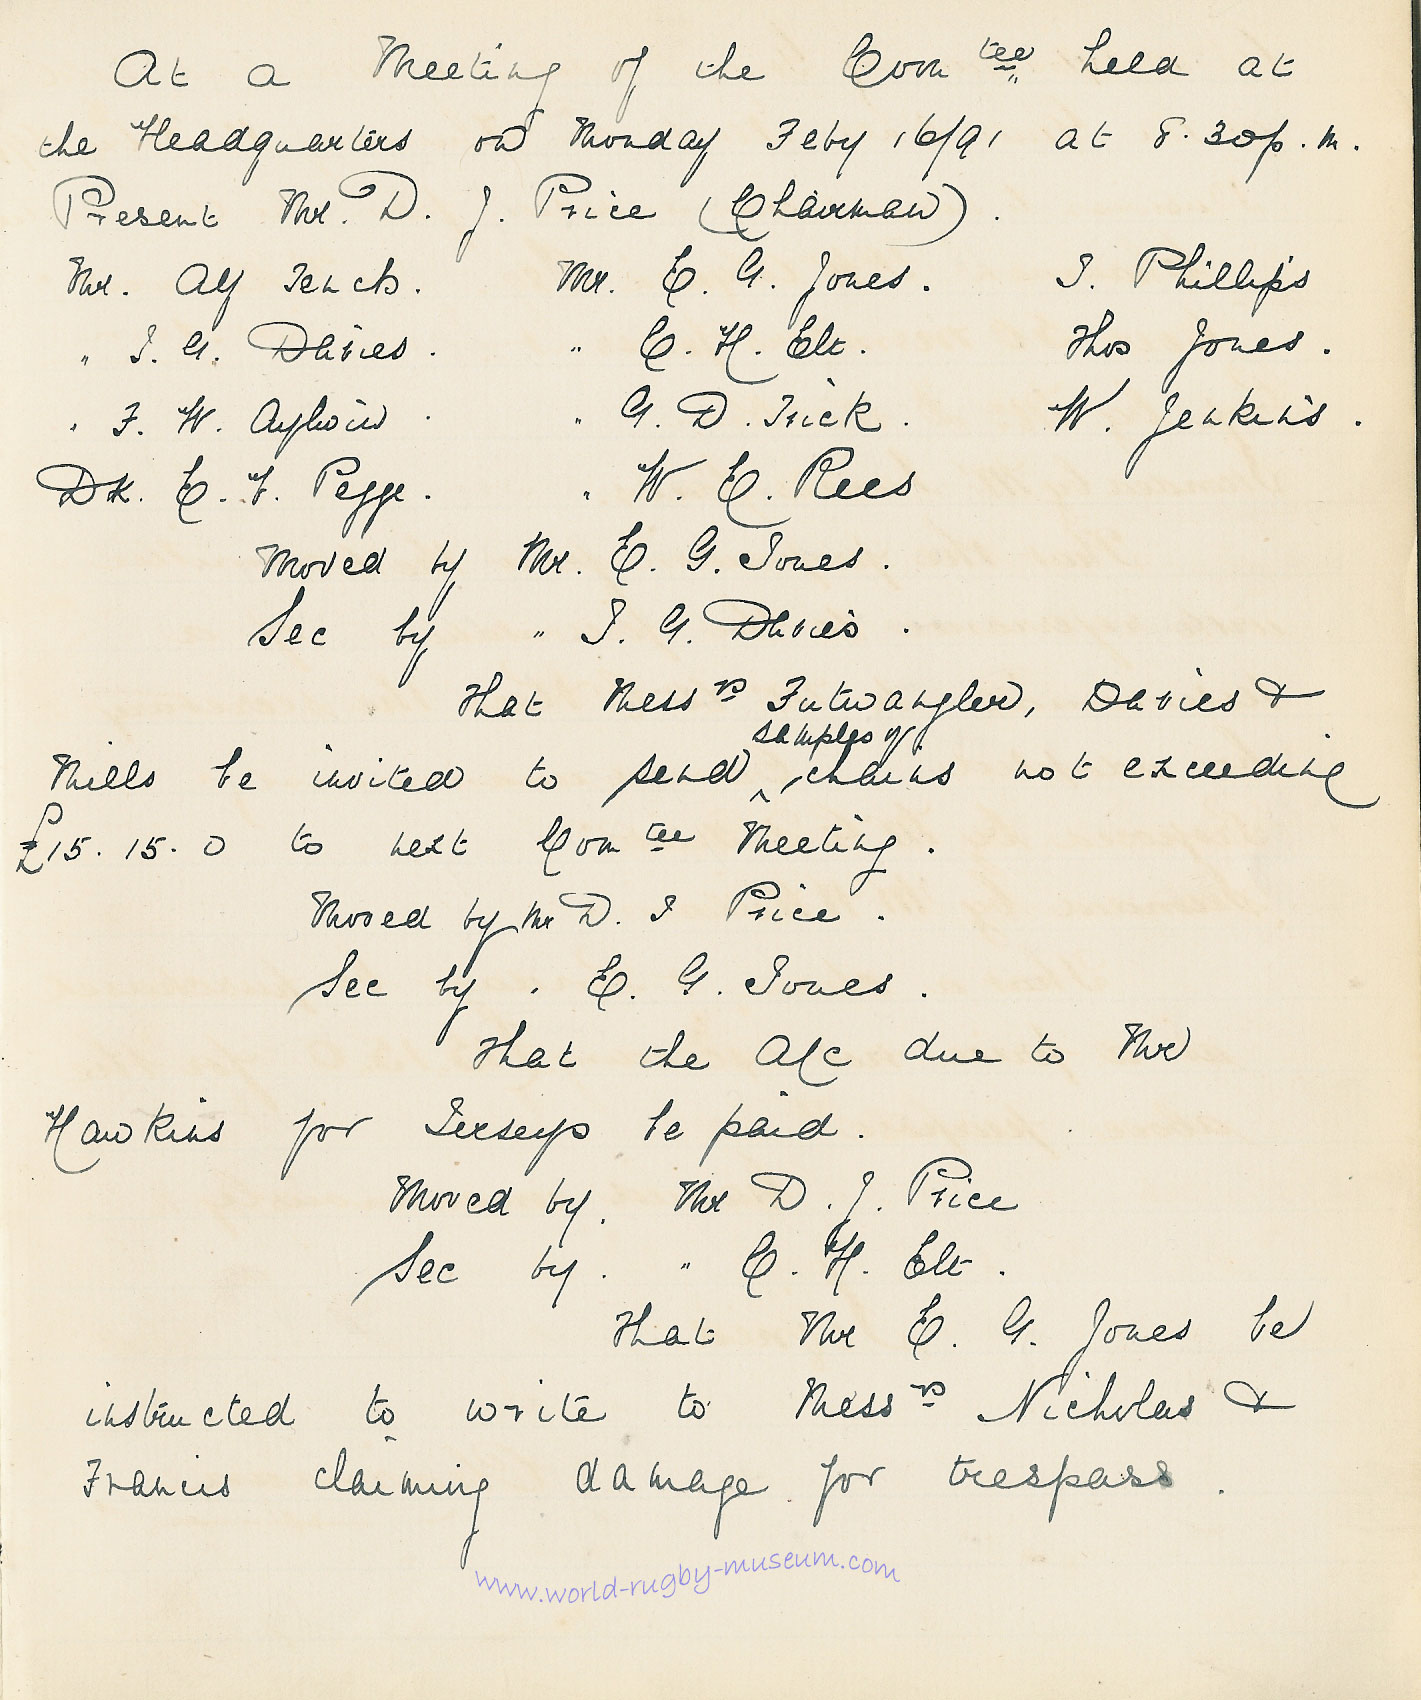 At a Meeting of the Comtee held at
the Headquarters on Monday Feby 16/91 at 8.30 p.m.
Present Mr. D. J. Price (Chairman).
Mr. Alf Tench. Mr. E. G. Jones. I. Phillips
" T. G. Davies. " C. H. Elt. Thos Jones.
" F. W. Aylwin. " G. D. Trick. W. Jenkins.
Dr. E. V. Pegge. " W. E. Rees
Moved by Mr. E. G. Jones.
Sec by " T. G. Davies.
That Messrs Futwangler, Davies &
samples of
Mills be invited to send ^ chains not exceeding
£15. 15. 0 to next Comtee Meeting.
Moved by Mr D. J Price.
Sec by " E. G. Jones.
That the A/c due to Mr
Hawkins for Jerseys be paid.
Moved by. Mr D. J. Price
Sec by. " C. H. Elt.
That Mr E. G. Jones be
instructed to write to Messrs Nicholas &
Francis claiming damage for trespass.
www.world-rugby-museum.com